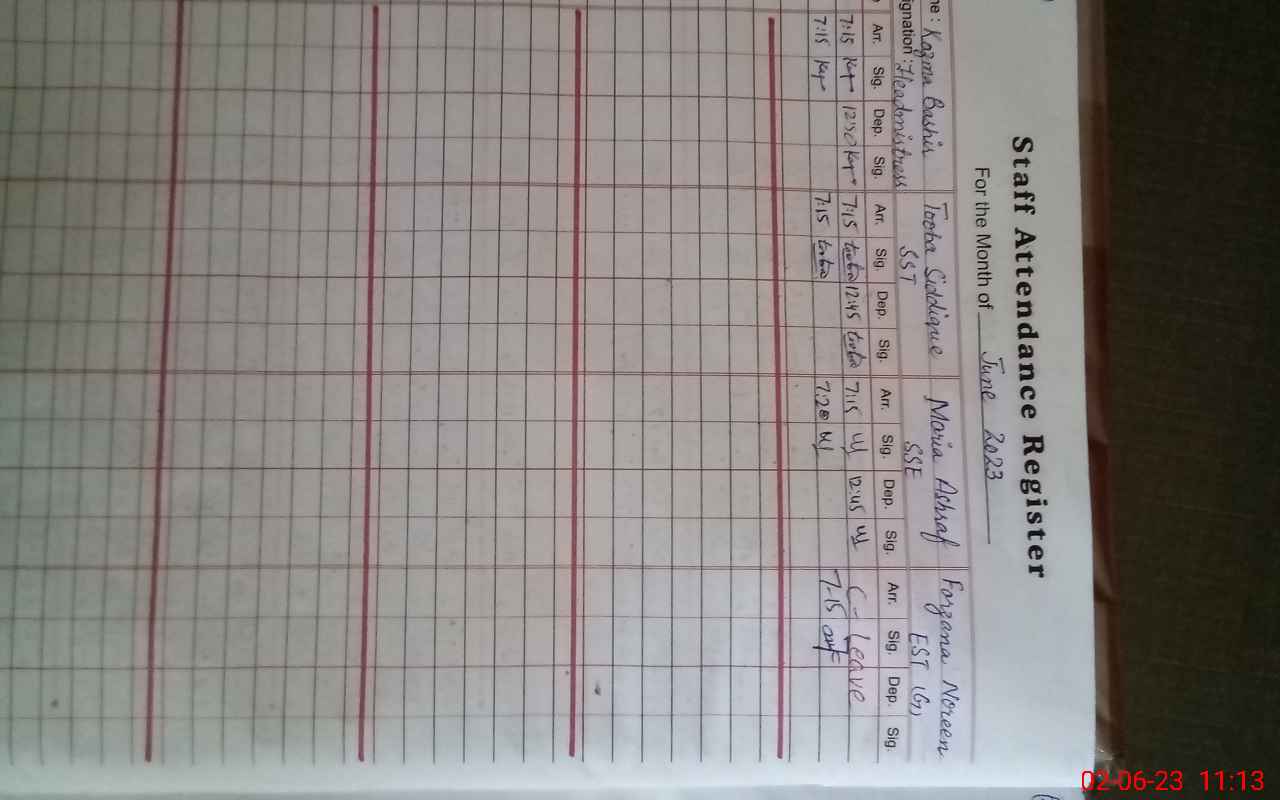 Staff Attendance Register
For the Month of June 2023
me: Kazma Bashir Tooba Siddique Maria Ashraf Farzana Noreen
ignation: Headmistress SST SSE EST (G)
Arr. Sig. Dep. Sig. Arr. Sig. Dep. Sig. Arr. Sig. Dep. Sig. Arr. Sig. Dep. Sig.
7:15 12:50 7:15 tooba 12:45 tooba 7:15 12:45 C-Leave
7:15 7:15 tooba 7:20 7-15
02-06-23 11:13